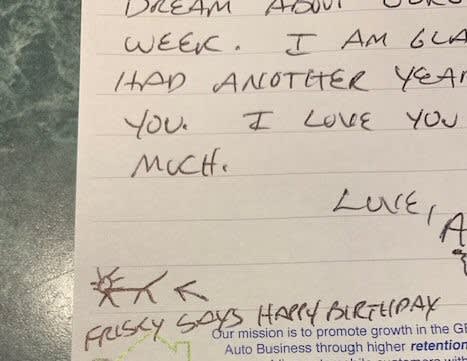 DREAM ABOUT
WEEK. I AM
HAD ANOTHER YEAR
YOU. I LOVE YOU
MUCH.
LOVE,
FRISKY SAYS HAPPY BIRTHDAY
Our mission is to promote growth in the
Auto Business through higher retention